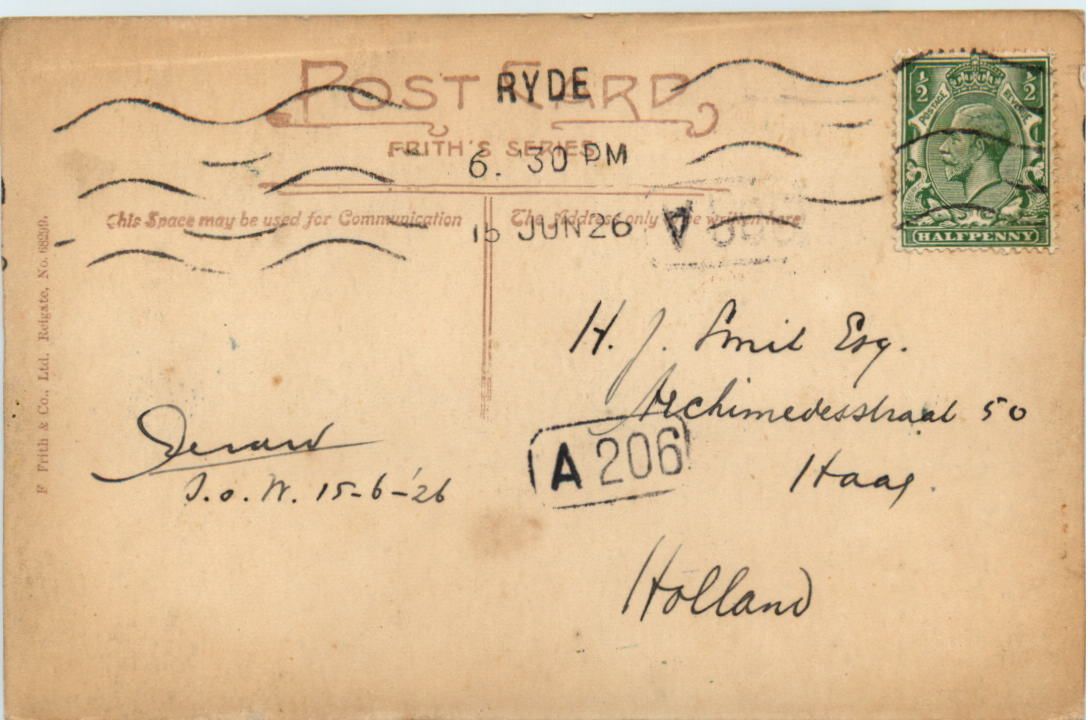 POST CARD
RYDE
FRITH'S SERIES
6. 30 PM
15 JUN 26
This Space may be used for Communication
The Address only to be written here
½ ½
POSTAGE REVENUE
HALFPENNY
F Frith & Co., Ltd. Reigate, No. 68299.
H. J. Smit Esq.
Archimedesstraat 50
Haag.
Holland
A 206
I. o. W. 15-6-'26